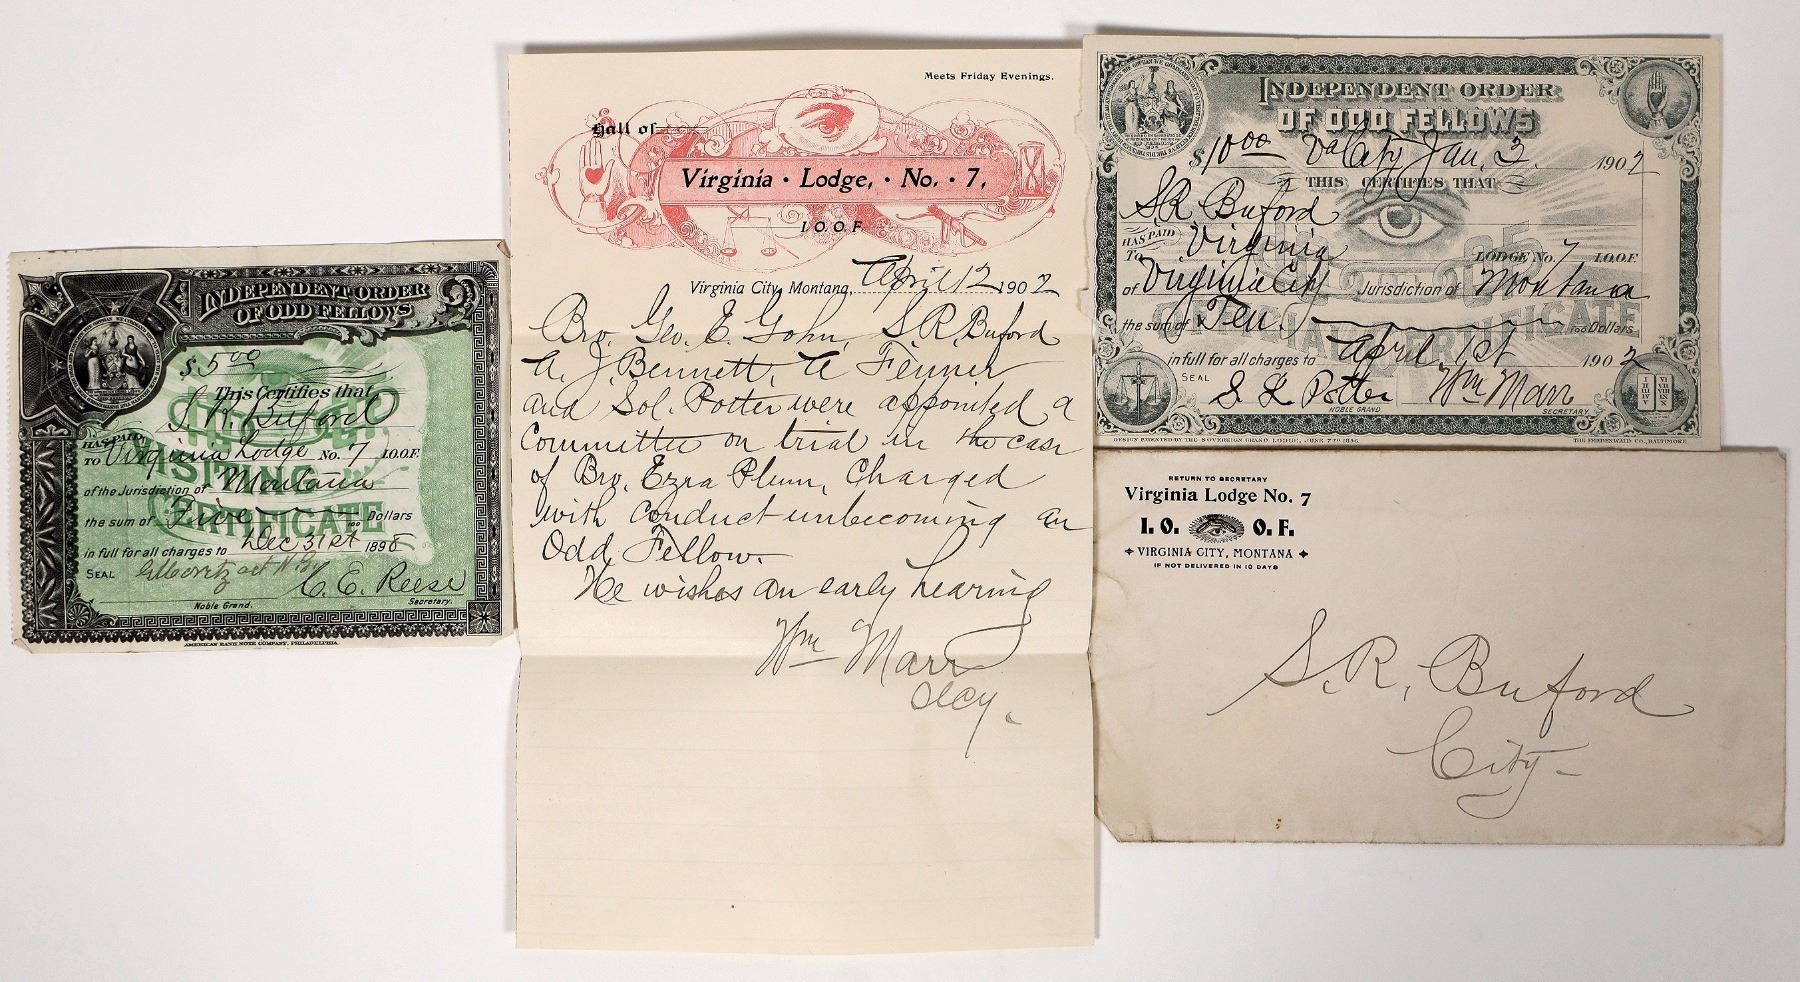 INDEPENDENT ORDER
OF ODD FELLOWS
$5 00
This Certifies that
S. R. Buford
HAS PAID
TO Virginia Lodge No. 7 I.O.O.F.
VISITING
of the Jurisdiction of Montana
CERTIFICATE
the sum of Five 100 Dollars
in full for all charges to Dec 31st 1898
SEAL
C. E. Reese
Noble Grand. Secretary.
AMERICAN BANK NOTE COMPANY, PHILADELPHIA.
Meets Friday Evenings.
Hall of
Virginia · Lodge, · No. · 7,
I.O.O.F.
Virginia City, Montana, April 12 1902
Bro. Geo. E. Gohn, S. R. Buford
A. J. Bennett, A Fenner
and Sol. Potter were appointed a
Committee on trial in the case
of Bro. Ezra Plum, Charged
with conduct unbecoming an
Odd Fellow.
He wishes an early hearing
Wm Marr
Secy.
INDEPENDENT ORDER
OF ODD FELLOWS
$10 00 Va City Jan. 2. 1902
THIS CERTIFIES THAT
S R Buford
HAS PAID
TO Virginia LODGE No. 7 I.O.O.F.
of Virginia City Jurisdiction of Montana
the sum of Ten 100 Dollars
CERTIFICATE
in full for all charges to April 1st 1902
SEAL S. L Potter Wm Marr
NOBLE GRAND SECRETARY.
DESIGN PATENTED BY THE SOVEREIGN GRAND LODGE, JUNE 7TH 1896. THE FRIEDENWALD CO., BALTIMORE
RETURN TO SECRETARY
Virginia Lodge No. 7
I. O. O. F.
VIRGINIA CITY, MONTANA
IF NOT DELIVERED IN 10 DAYS
S. R. Buford
City